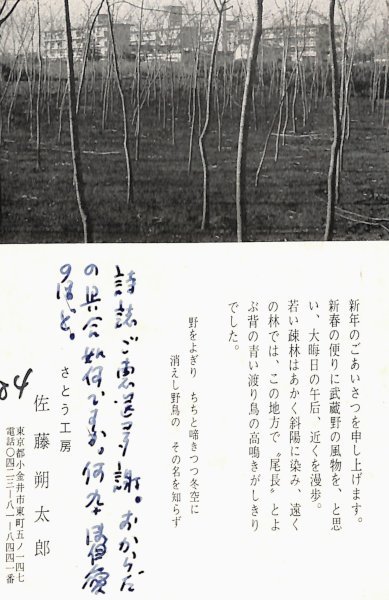 新年のごあいさつを申し上げます。
新春の便りに武蔵野の風物を、と思
い、大晦日の午后、近くを漫歩。
若い疎林はあかく斜陽に染み、遠く
の林では、この地方で〝尾長〟とよ
ぶ背の青い渡り鳥の高鳴きがしきり
でした。
野をよぎり ちちと啼きつつ冬空に
消えし野鳥の その名を知らず
詩誌ご恵送多謝。おからだ
の具合如何ですか。何卒御自愛
のほど。
さとう工房
佐藤朔太郎
東京都小金井市東町五ノ一四七
電話〇四二三—八一—八四四一番
84